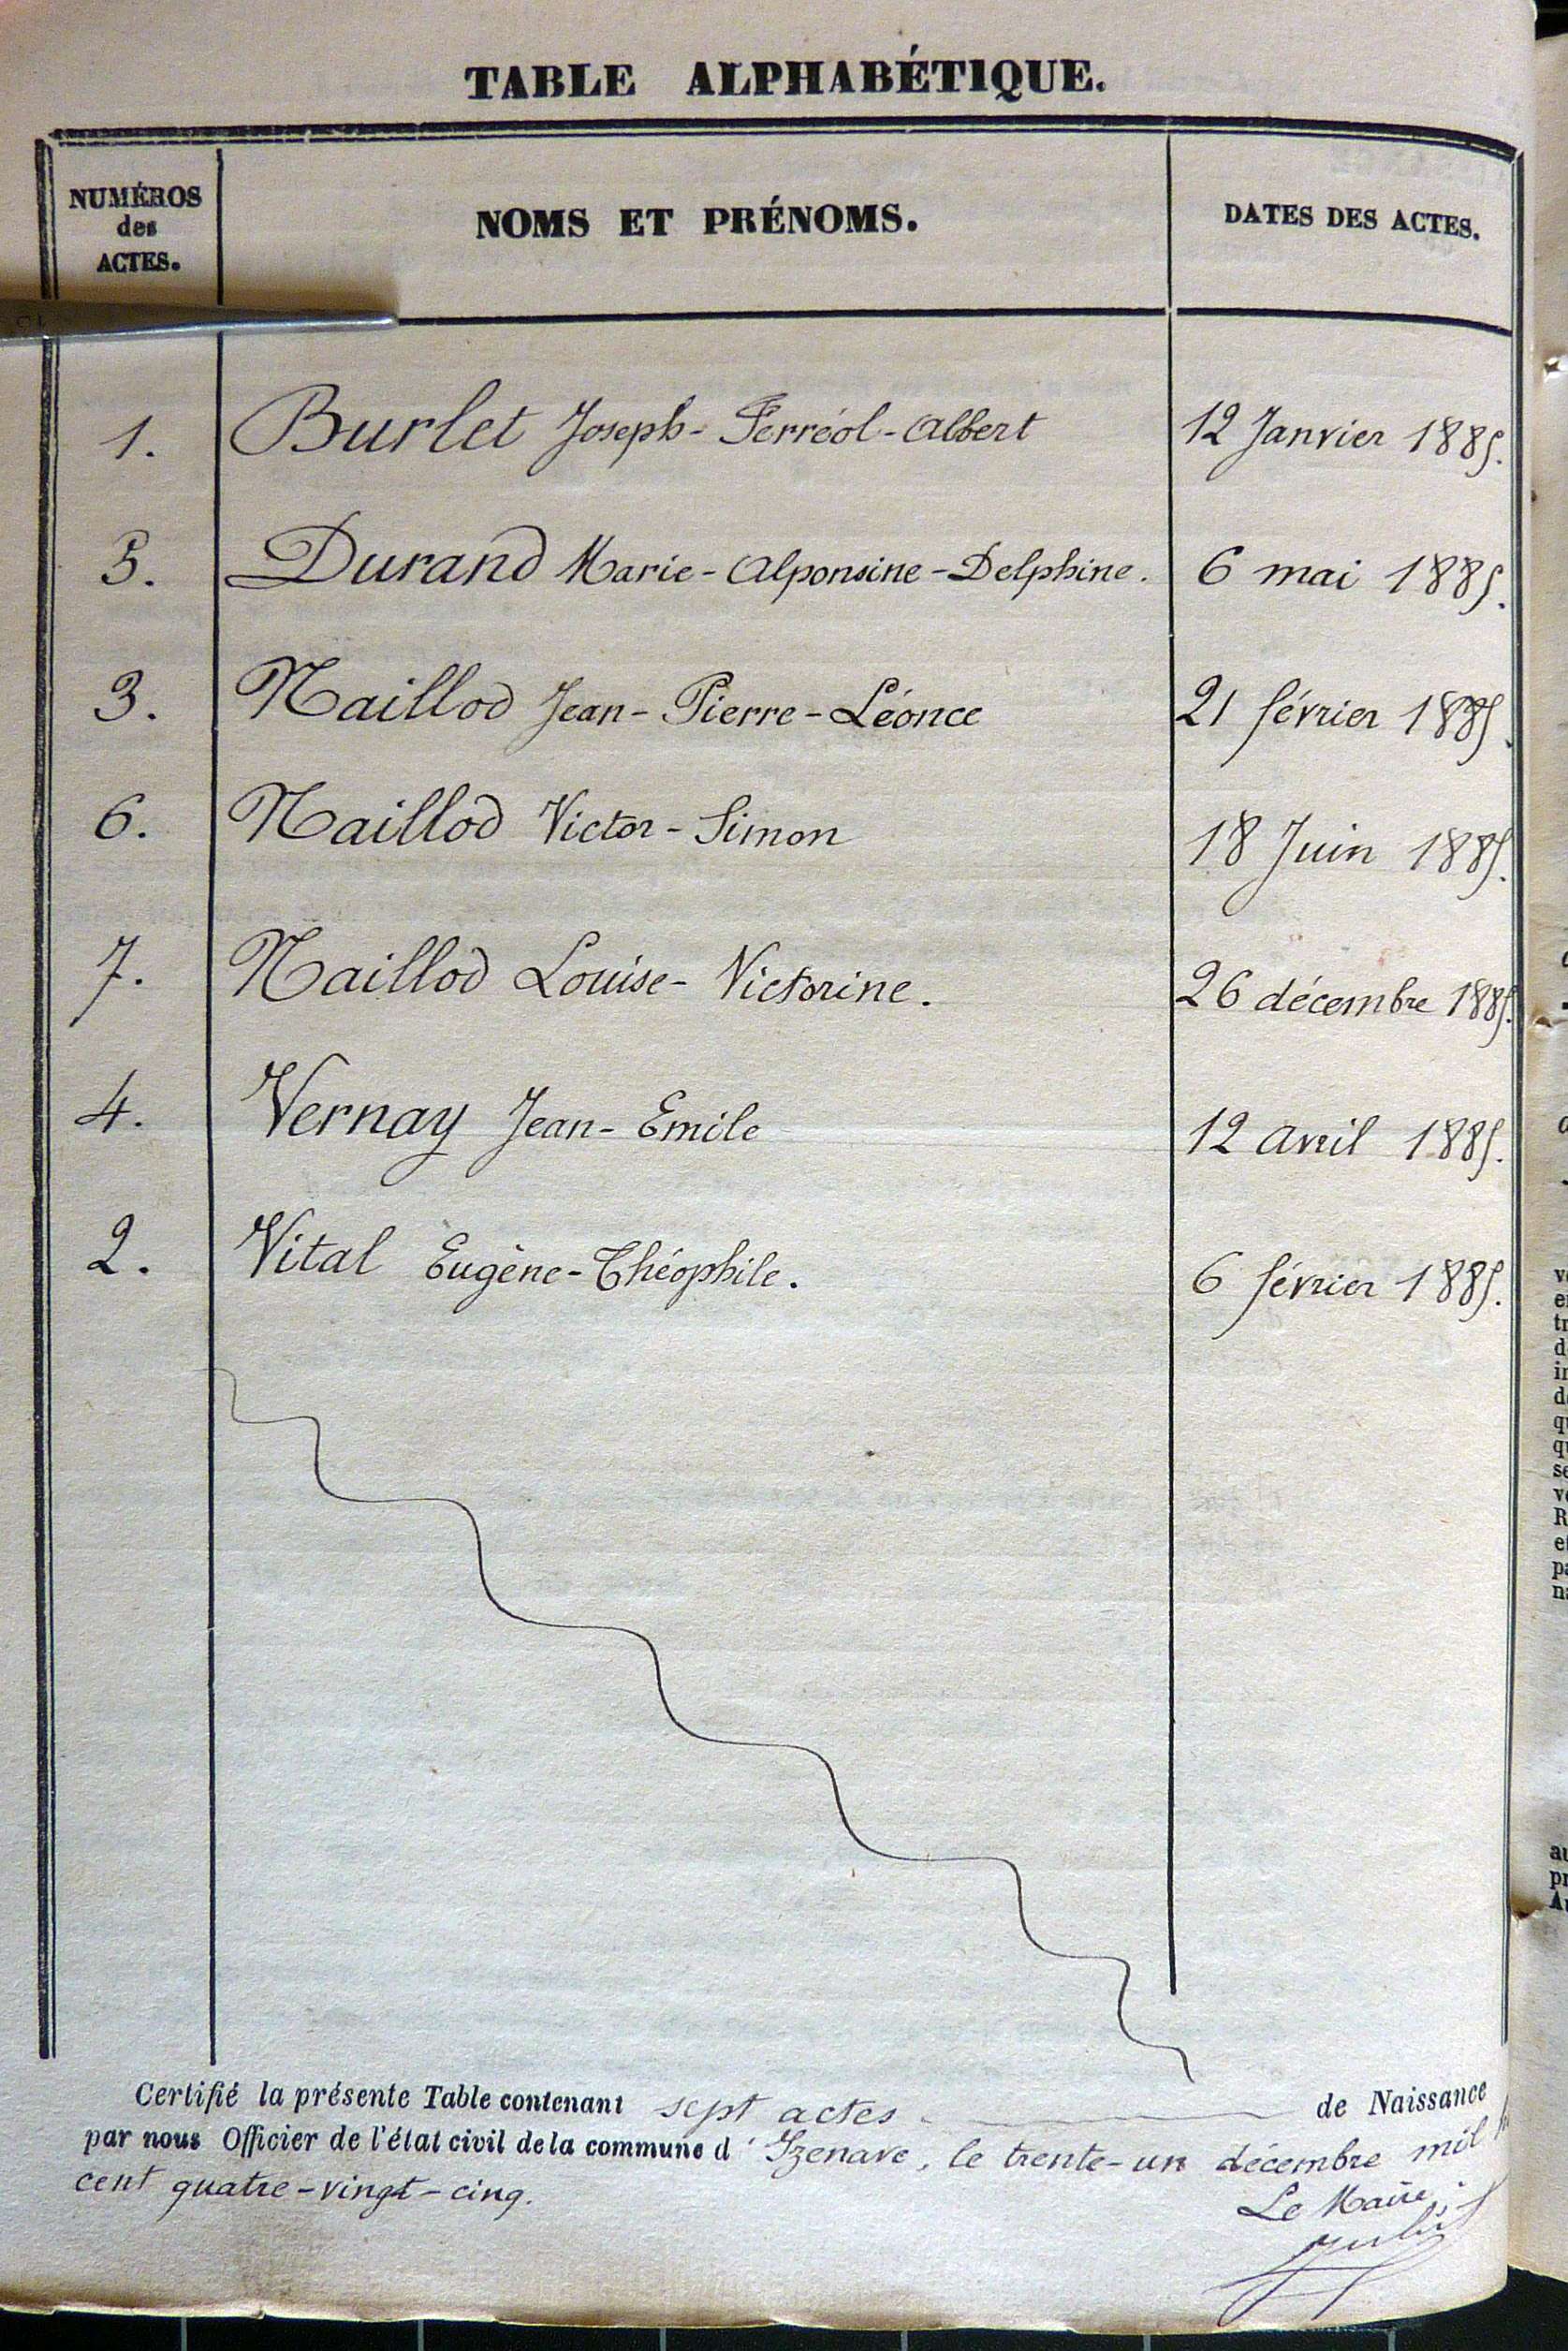 TABLE ALPHABÉTIQUE.
NUMÉROS des ACTES.
NOMS ET PRÉNOMS.
DATES DES ACTES.
1. Burlet Joseph-Ferréol-Albert 12 Janvier 1885.
5. Durand Marie-Alponsine-Delphine. 6 mai 1885.
3. Maillod Jean-Pierre-Léonce 21 février 1885.
6. Maillod Victor-Simon 18 Juin 1885.
7. Maillod Louise-Victorine. 26 décembre 1885.
4. Vernay Jean-Emile 12 avril 1885.
2. Vital Eugène-Théophile. 6 février 1885.
Certifié la présente Table contenant sept actes de Naissance
par nous Officier de l'état civil de la commune d'Izenave, le trente-un décembre mil
cent quatre-vingt-cinq.
Le Maire